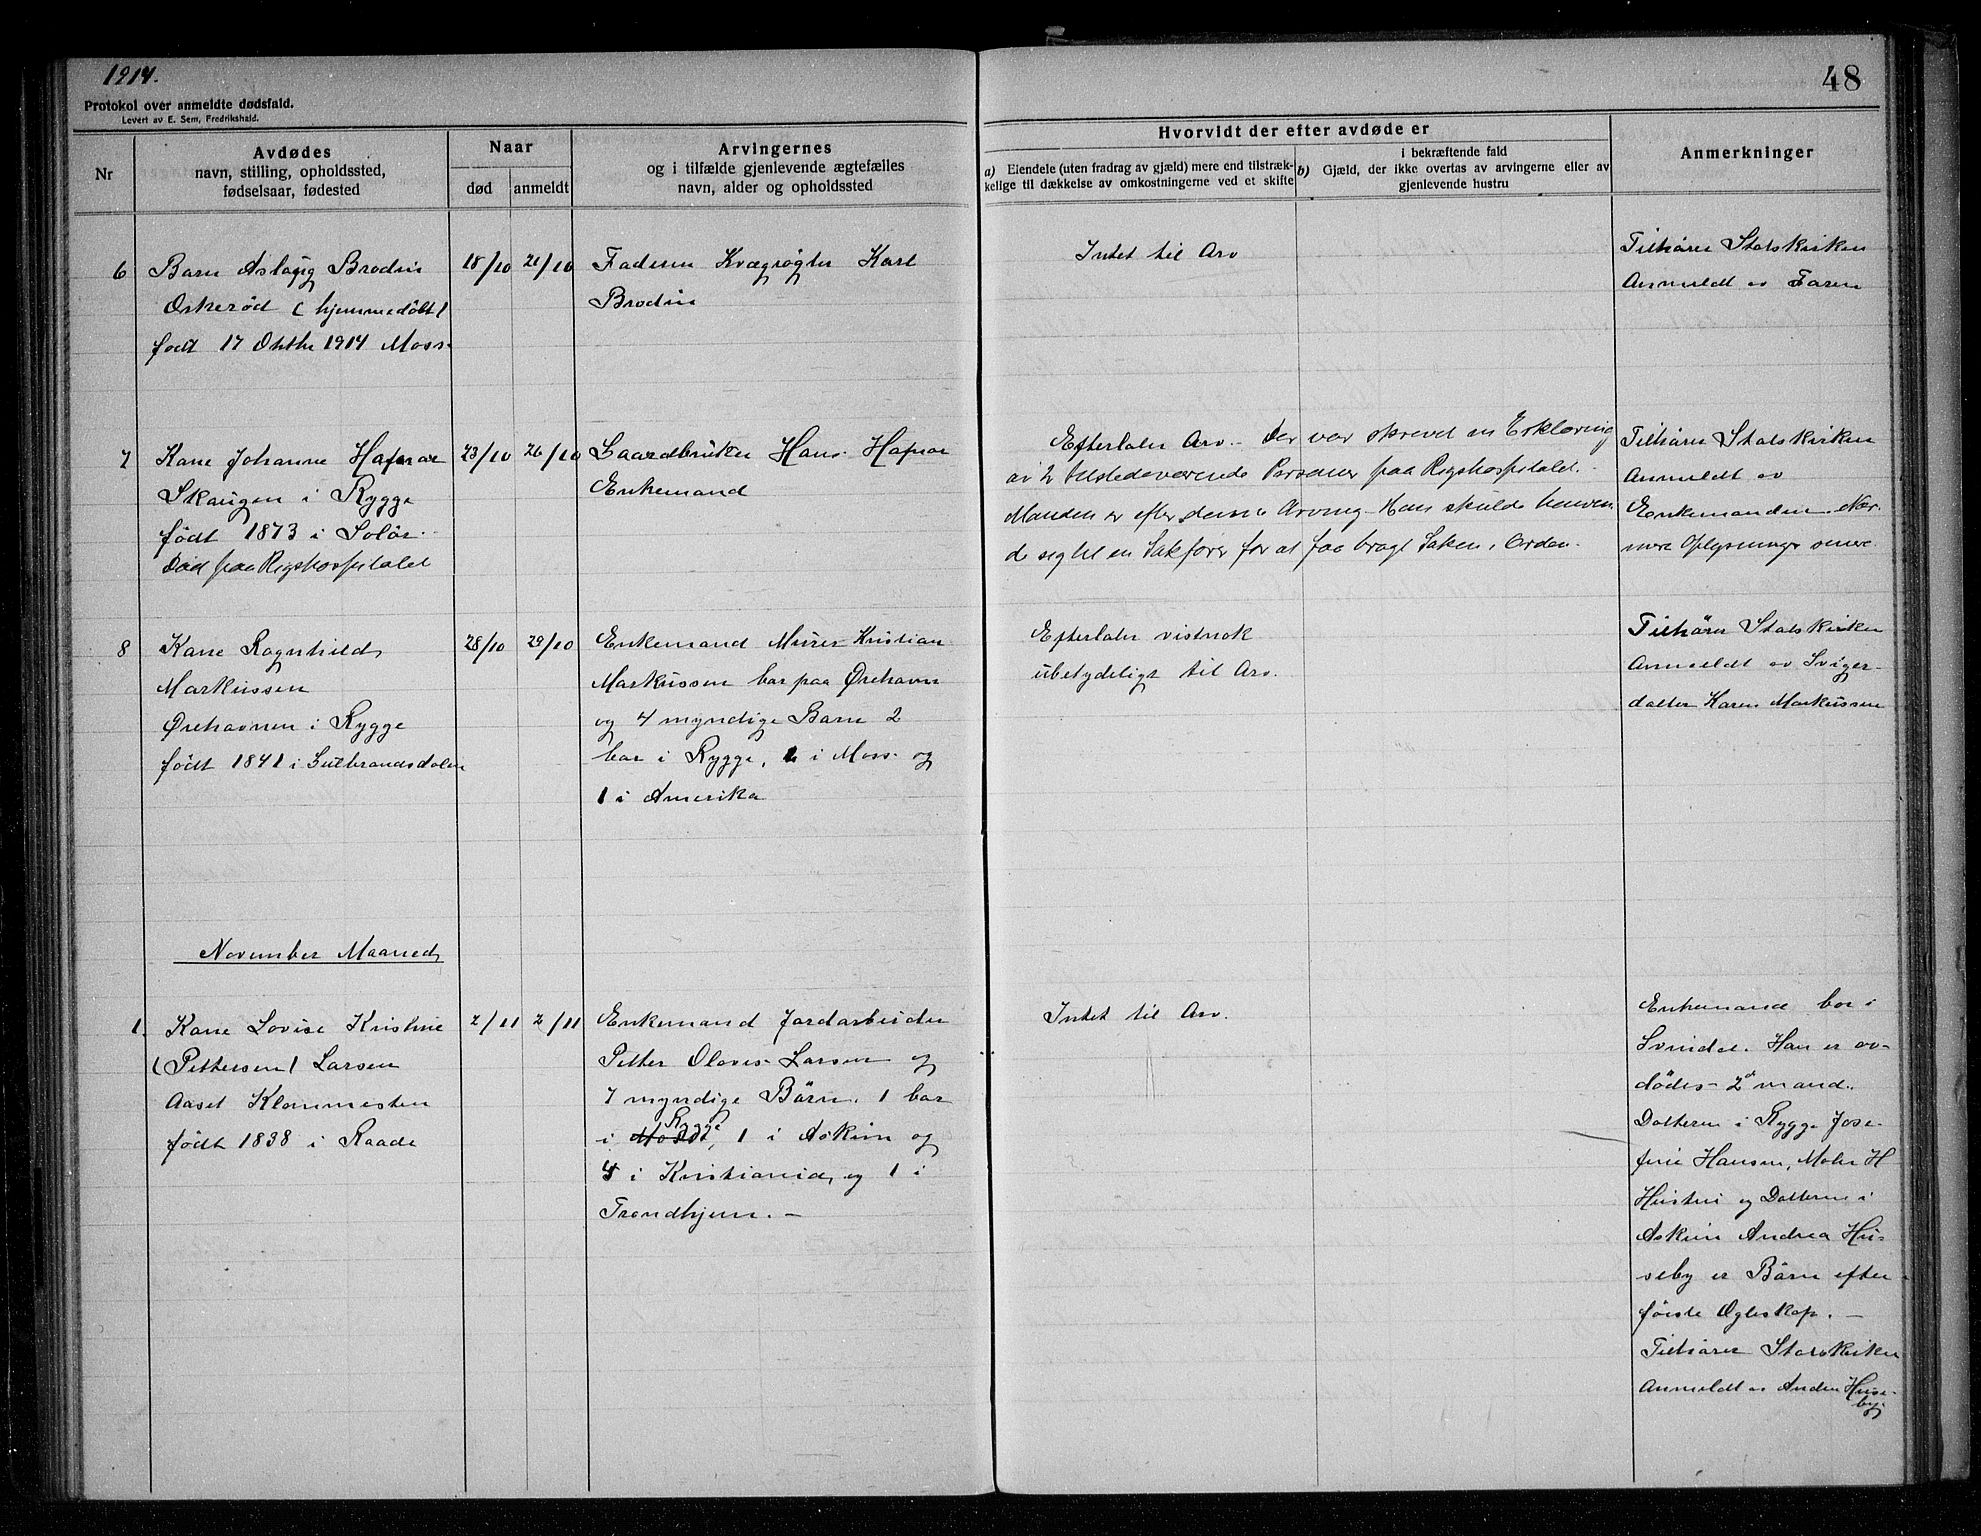 1914.
48
Protokol over anmeldte dødsfald.
Levert av E. Sem, Fredrikshald.
Nr
Avdødes
navn, stilling, opholdssted,
fødselsaar, fødested
Naar
død
anmeldt
Arvingernes
og i tilfælde gjenlevende ægtefælles
navn, alder og opholdssted
Hvorvidt der efter avdøde er
a) Eiendele (uten fradrag av gjæld) mere end tilstræk-
kelige til dækkelse av omkostningerne ved et skifte
i bekræftende fald
b) Gjæld, der ikke overtas av arvingerne eller av
gjenlevende hustru
Anmerkninger
6
Barn Aslaug Brodin
Oskerød (hjemmedöbt)
født 17 Oktbr 1914 Moss.
18/10 21/10
Faderen Kvægrøgter Karl
Brodin
Intet til Arv
Tilhører Statskirken
Anmeldt av Faren
7
Kone Johanne Hafsaar
Skaugen i Rygge
født 1873 i Solør.
Død paa Rigshospitalet
23/10 26/10
Gaardbruker Hans Hafsaar
Enkemand
Efterlater Arv. Der var skrevet en Erklæring
av 2 tilstedeværende Personer paa Rigshospitalet.
Manden er efter denne Arving. Han skulde henven
de sig til en Sakfører for at faa bragt Saken i Orden.
Tilhører Statskirken
Anmeldt av
Enkemanden. Nær-
mere Oplysninger senere
8
Kone Ragnhild
Markussen
Ørehavnen i Rygge
født 1841 i Gulbrandsdalen
28/10 29/10
Enkemand Murer Kristian
Markussen bor paa Ørehavn
og 4 myndige Barn 2
bor i Rygge, 1 i Moss og
1 i Amerika
Efterlater vistnok
ubetydeligt til Arv.
Tilhører Statskirken
Anmeldt av Sviger-
datter Karen Markussen
November Maaned
1.
Kone Lovise Kristine
(Pettersen) Larsen
Aaset Klommesten
født 1838 i Raade
2/11 2/11
Enkemand Jordarbeider
Petter Olaves Larsen og
7 myndige Börn. 1 bor
i Rygge, 1 i Askim og
4 i Kristiania og 1 i
Trondhjem. –
Intet til Arv.
Enkemand bor i
Svindal. Han er av-
dødes 2d mand.
Datteren i Rygge Jose-
fine Hansen, Maler H
Hustru og Datteren i
Askim Andrea Hu-
seby er Börn efter
förste Egteskap. –
Tilhører Statskirken
Anmeldt av Andrea Huse-
by.